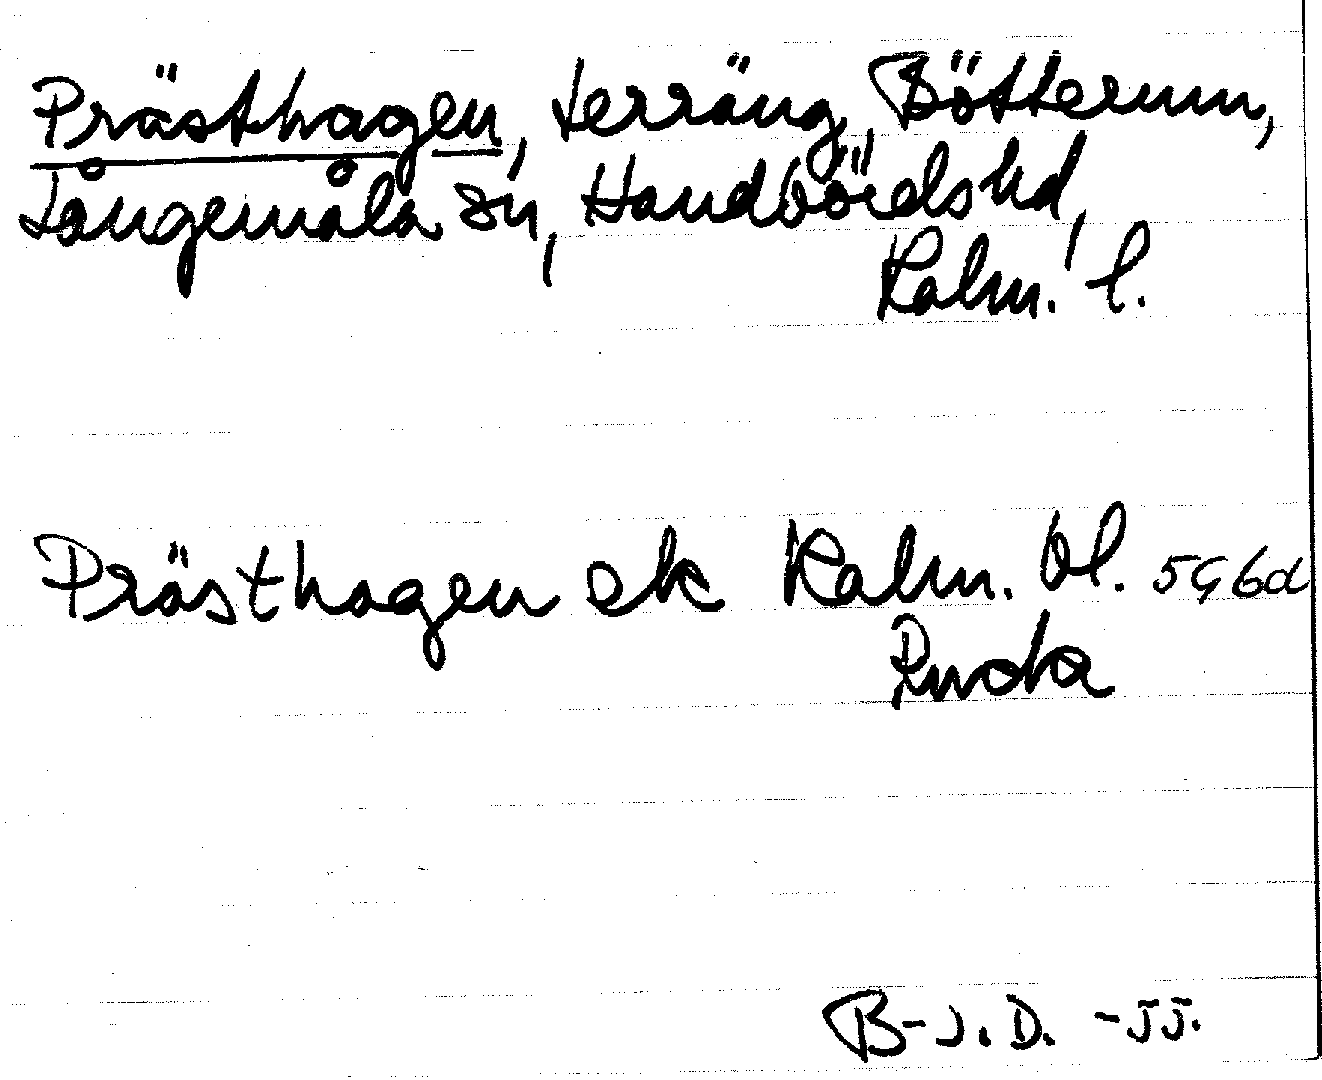 Prästhagen, terräng, Bötterum,
Långemåla sn, Handbörds hd,
Kalm. l.
Prästhagen ek Kalm. bl. 5G6d
Ruda
B-J.D. -55.